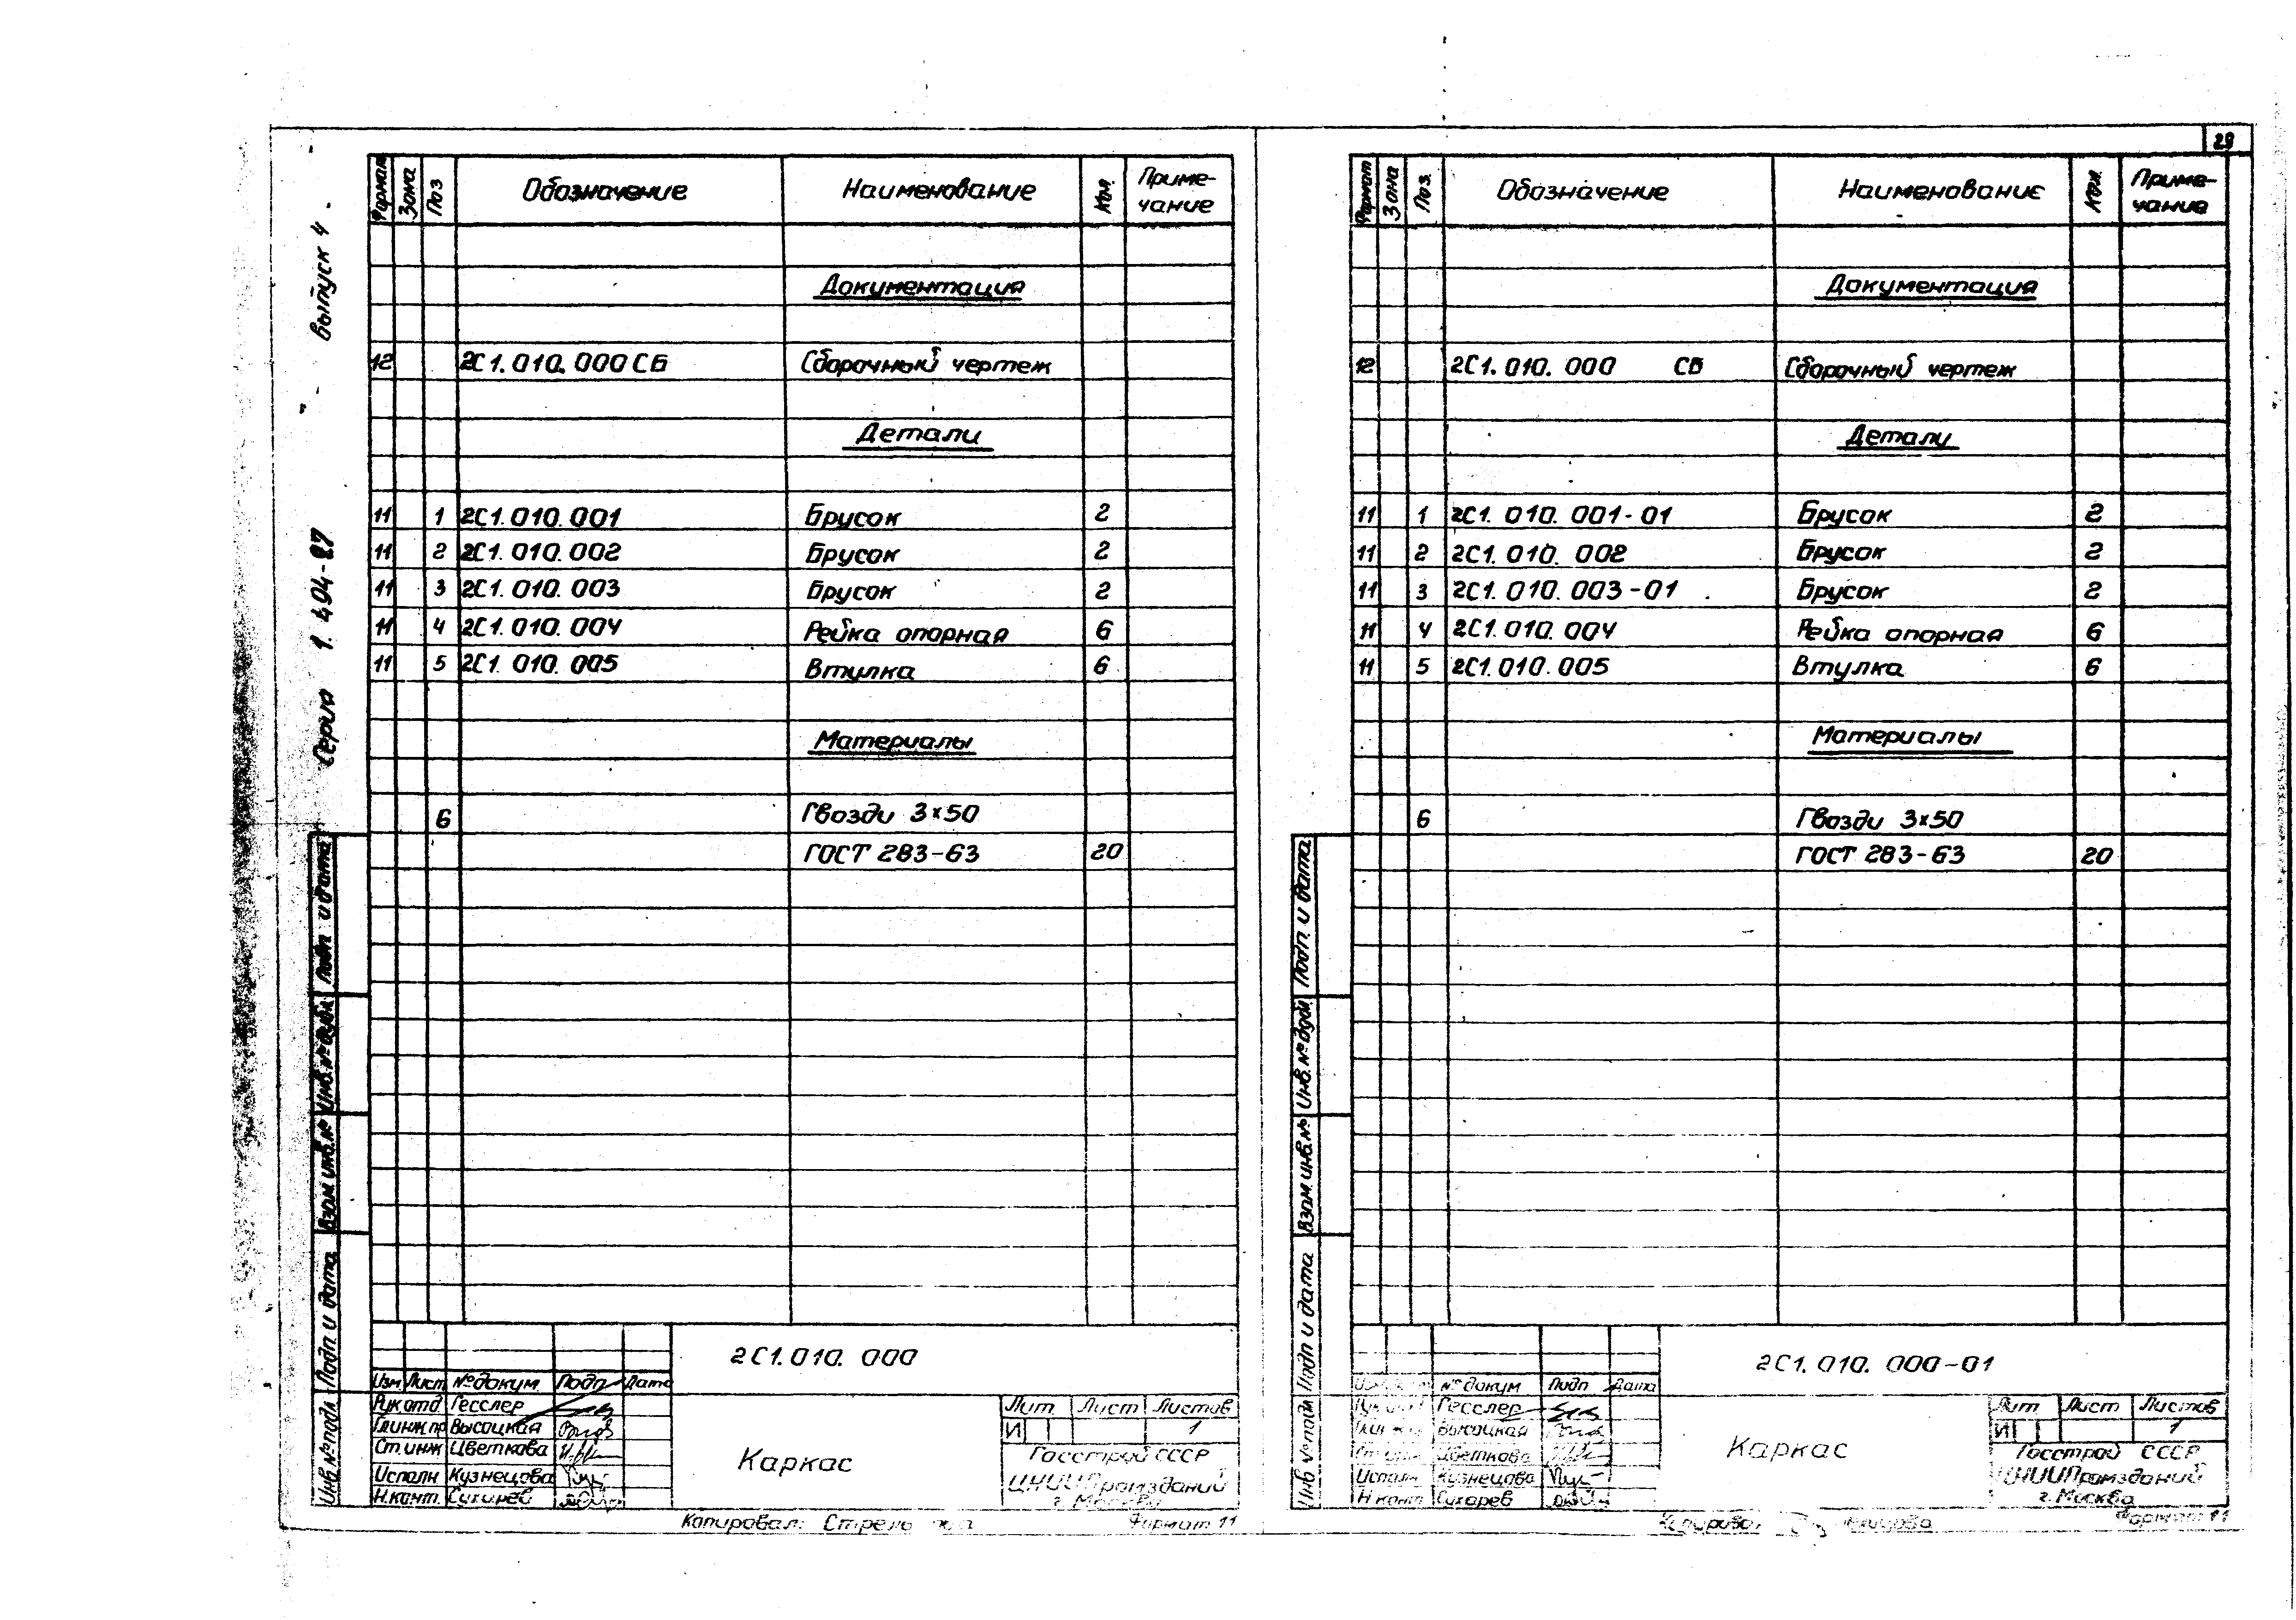 29
Серия 1.494-27 выпуск 4.
Формат Зона Поз Обозначение Наименование Кол. Приме-
чание
Документация
12 2С1.010.000 СБ Сборочный чертеж
Детали
11 1 2С1.010.001 Брусок 2
11 2 2С1.010.002 Брусок 2
11 3 2С1.010.003 Брусок 2
11 4 2С1.010.004 Рейка опорная 6
11 5 2С1.010.005 Втулка 6
Материалы
6 Гвозди 3×50
ГОСТ 283-63 20
Подп и дата
Инв.№ дубл.
Взам.инв.№
Подп и дата
Инв №подл
2С1.010.000
Изм Лист №докум Подп Дата
Рук отд Гесслер
Гл инж пр Высоцкая
Ст инж Цветкова
Исполн Кузнецова
Н.конт. Сухарев
Каркас
Лит Лист Листов
И 1
Госстрой СССР
ЦНИИПромзданий
г. Москва
Копировал: Формат 11
Формат Зона Поз. Обозначение Наименование Кол. Приме-
чание
Документация
12 2С1.010.000 СБ Сборочный чертеж
Детали
11 1 2С1.010.001-01 Брусок 2
11 2 2С1.010.002 Брусок 2
11 3 2С1.010.003-01 Брусок 2
11 4 2С1.010.004 Рейка опорная 6
11 5 2С1.010.005 Втулка 6
Материалы
6 Гвозди 3×50
ГОСТ 283-63 20
Подп. и дата
Инв.№ дубл.
Взам.инв.№
Подп и дата
Инв №подл
2С1.010.000-01
№ докум Подп Дата
Гесслер
Высоцкая
Цветкова
Исполн Кузнецова
Н конт Сухарев
Каркас
Лит Лист Листов
И 1
Госстрой СССР
ЦНИИПромзданий
г. Москва
Копировал Формат 11